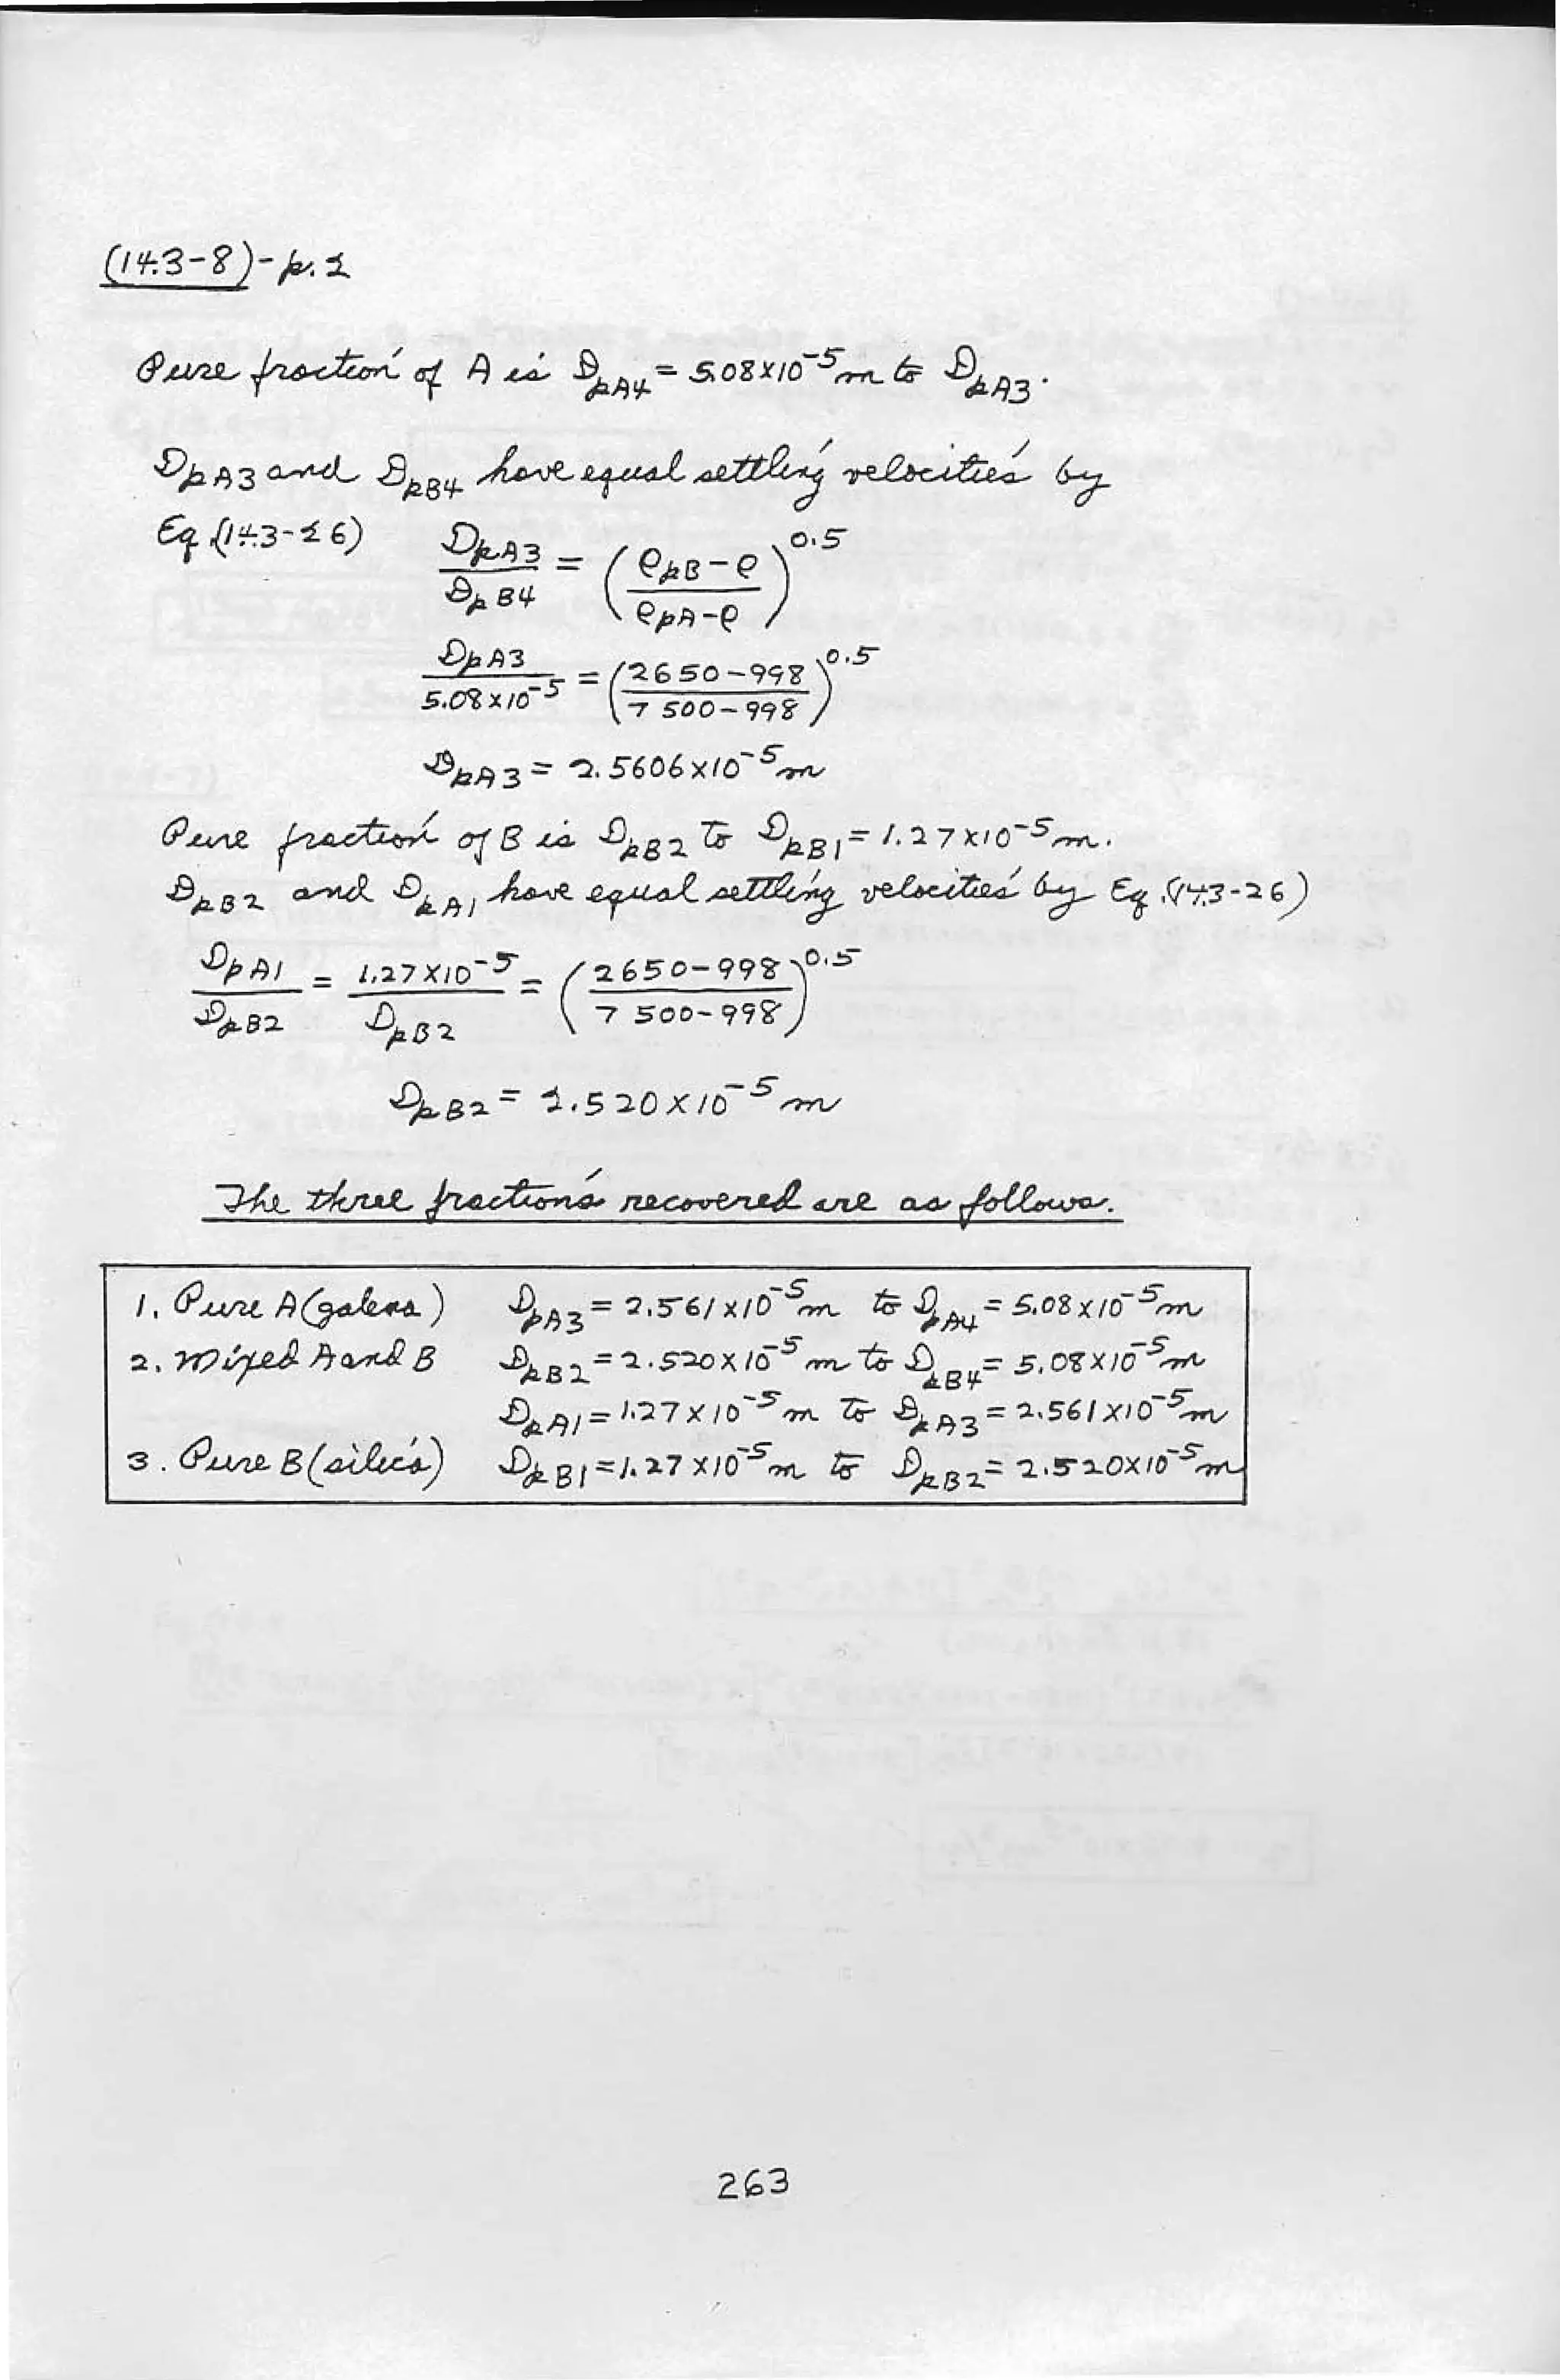 (14.3-8)-p.2
Pure fraction of A is DpA4 = 5.08×10⁻⁵ m to DpA3.
DpA3 and DpB4 have equal settling velocities by
Eq.(14.3-26) DpA3/DpB4 = ((ρpB-ρ)/(ρpA-ρ))^0.5
DpA3/5.08×10⁻⁵ = ((2650-998)/(7500-998))^0.5
DpA3 = 2.5606×10⁻⁵ m
Pure fraction of B is DpB2 to DpB1 = 1.27×10⁻⁵ m.
DpB2 and DpA1 have equal settling velocities by Eq.(14.3-26)
DpA1/DpB2 = 1.27×10⁻⁵/DpB2 = ((2650-998)/(7500-998))^0.5
DpB2 = 2.520×10⁻⁵ m
The three fractions recovered are as follows.
1. Pure A (galena) DpA3 = 2.561×10⁻⁵ m to DpA4 = 5.08×10⁻⁵ m
2. Mixed A and B DpB2 = 2.520×10⁻⁵ m to DpB4 = 5.08×10⁻⁵ m
DpA1 = 1.27×10⁻⁵ m to DpA3 = 2.561×10⁻⁵ m
3. Pure B (silica) DpB1 = 1.27×10⁻⁵ m to DpB2 = 2.520×10⁻⁵ m
263